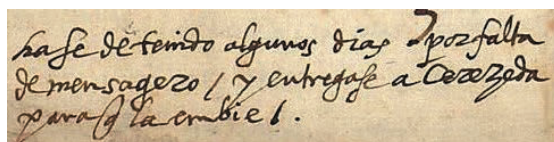 hase deteindo algunos dias por falta
de mensagero / y entregase a Cerezeda
para q̃ la embie /.